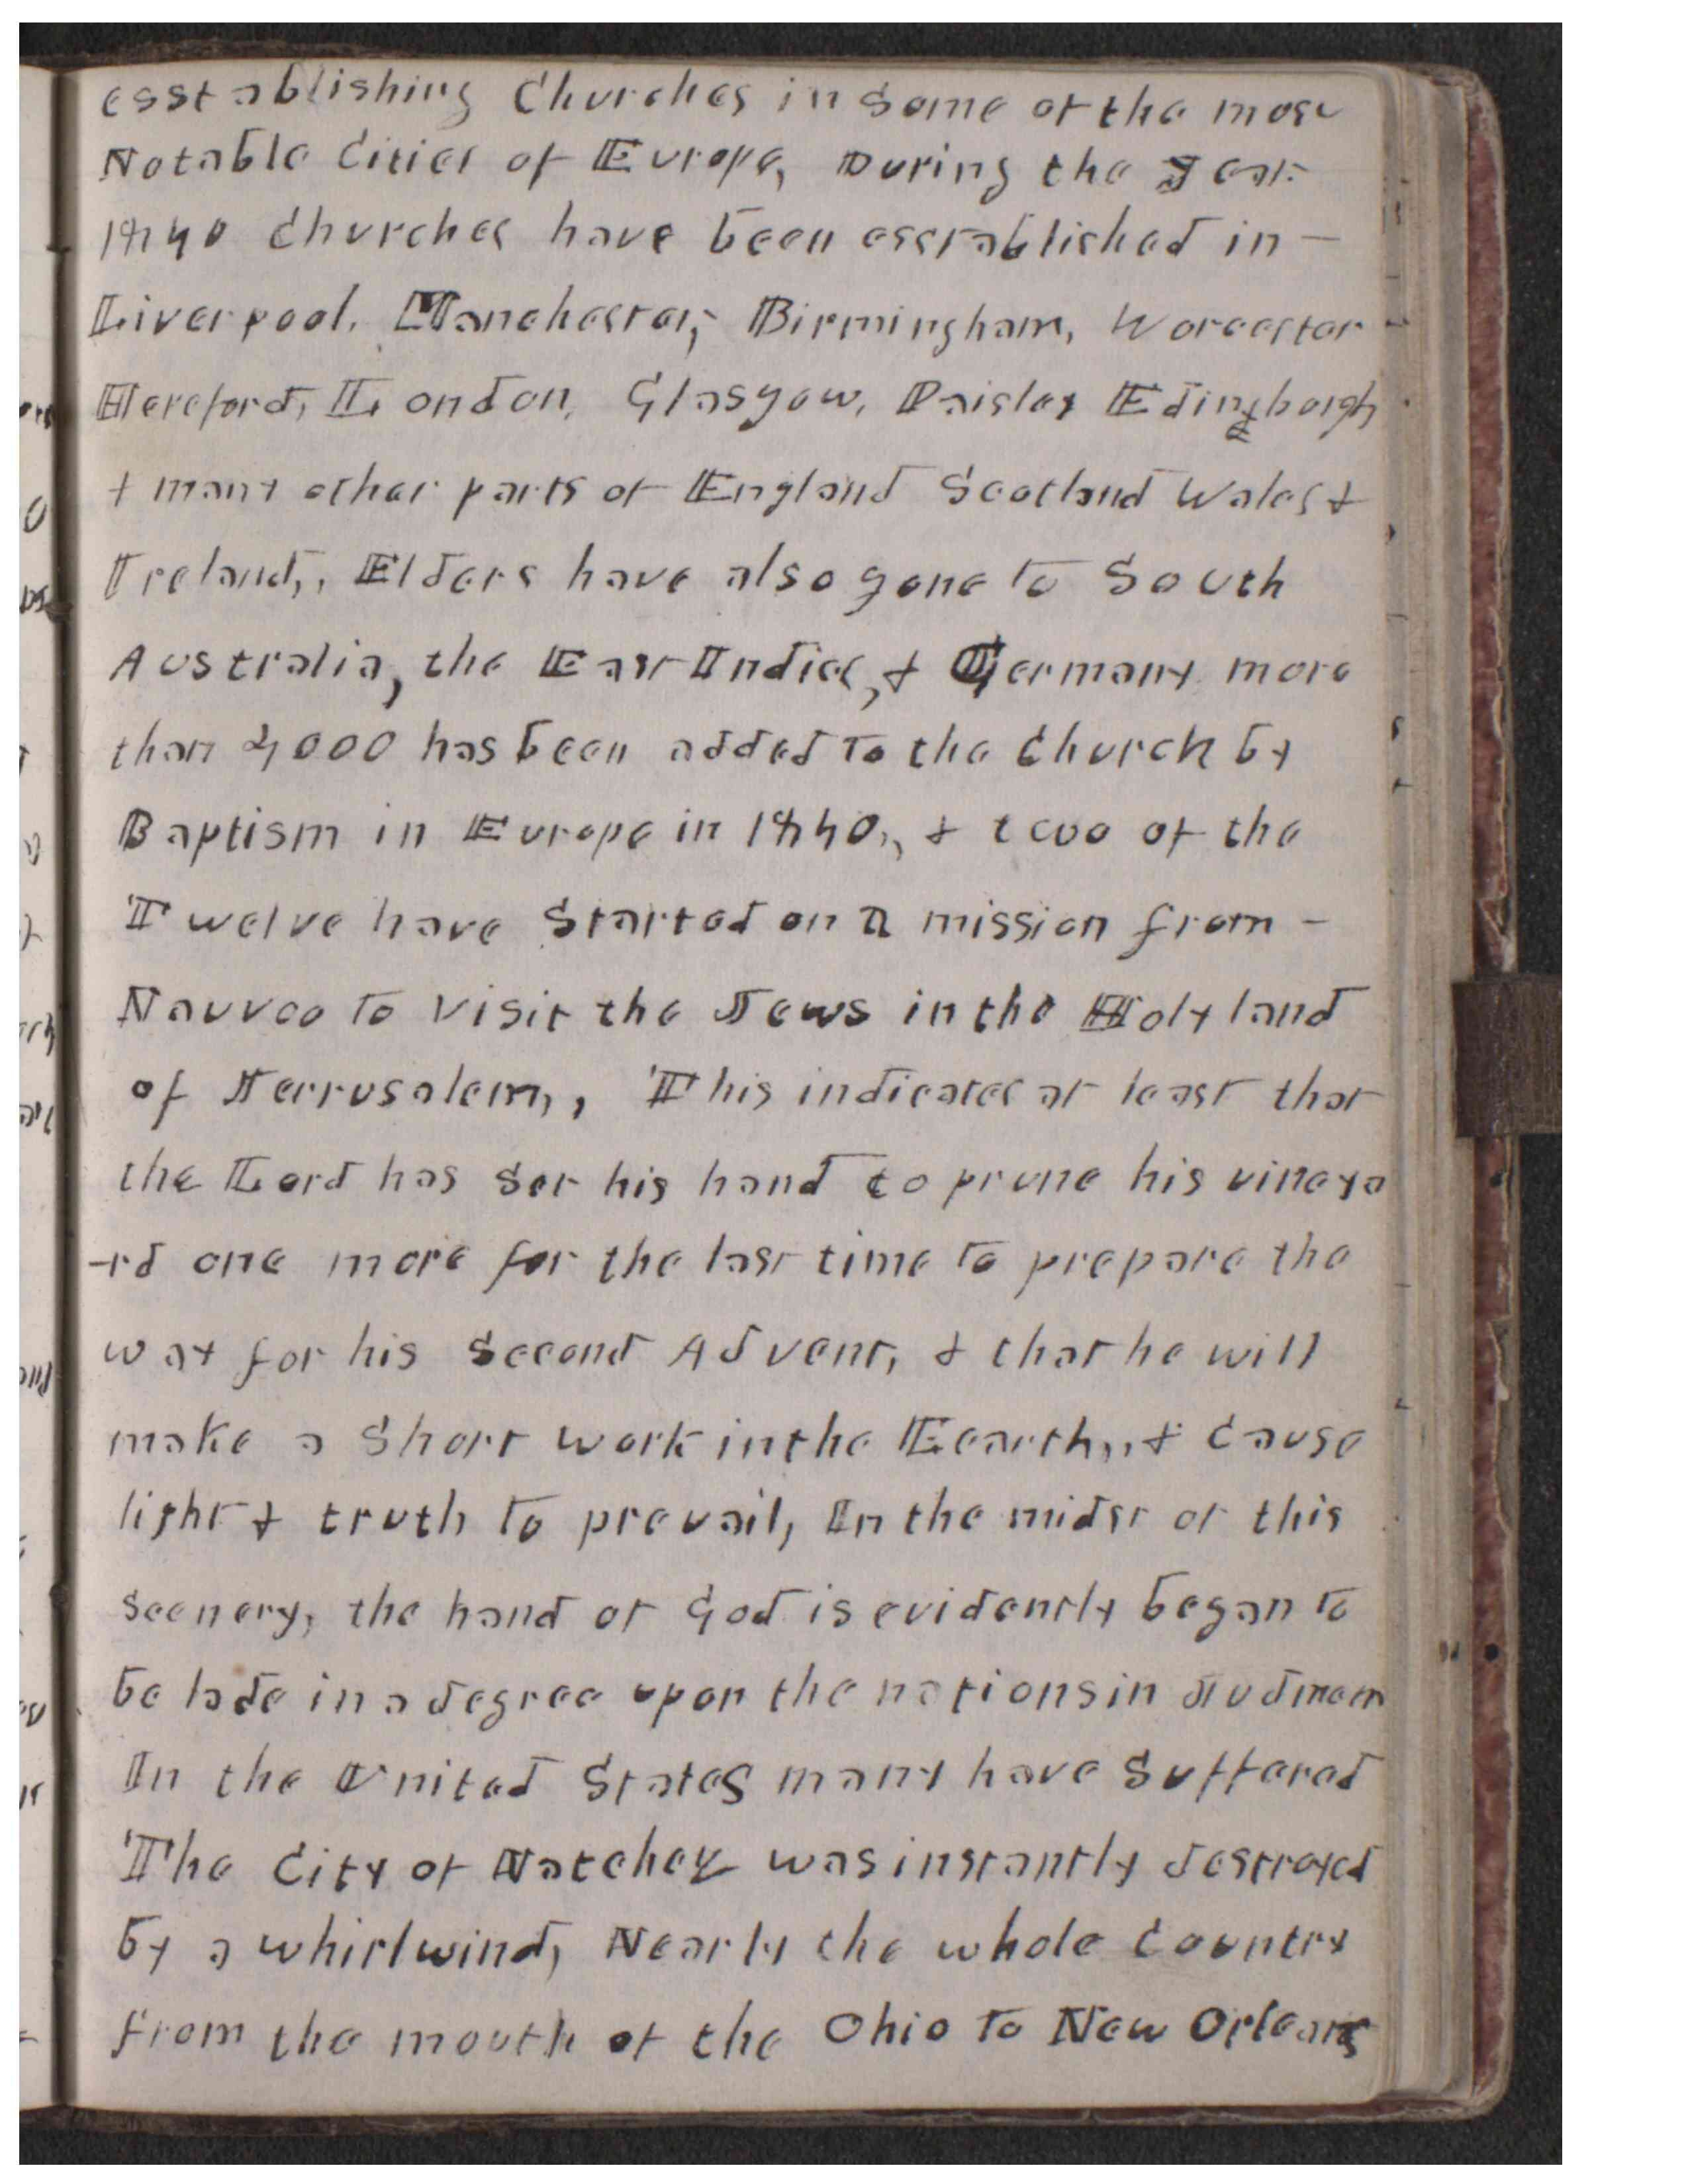 esstablishing Churches in Some of the most
Notable Cities of Europe, During the Year
1840 Churches have been esstablished in -
Liverpool, Manchester, Birmingham, Worcester
Hereford, London, Glasgow, Paisley Edingborgh
& many other parts of England Scotland Wales &
Ireland,, Elders have also gone to South
Australia, the East Indies, & Germany more
than 4000 has been added to the Church by
Baptism in Europe in 1840,, & two of the
Twelve have Started on a mission from -
Nauvoo to visit the Jews in the Holy land
of Jerrusalem,, This indicates at least that
the Lord has Set his hand to prune his vineya
-rd one more for the last time to prepare the
way for his Second Advent, & that he will
make a Short work in the Eearth,, & Cause
light & truth to prevail, In the midst of this
Scenery, the hand of God is evidently began to
be lade in a degree upon the nations in Judmen
In the United States many have Suffered
The City of Natchez was instantly destroyed
by a whirlwind, Nearly the whole Country
from the mouth of the Ohio to New Orleans